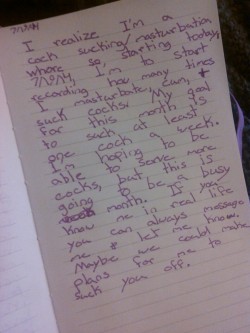 7/12/14
I realize I'm a
cock sucking/masturbation
whore so, starting today,
7/12/14, I'm to start
recording how many times
I masturbate, cum, +
suck cocks. My goal
for this month is
to suck at least
one cock a week.
I'm hoping to be
able to serve more
cocks, but this is
going to be a busy
month. If you
know me in real life
you can always message
me + let me know.
Maybe we could make
plans for me to
suck you off.